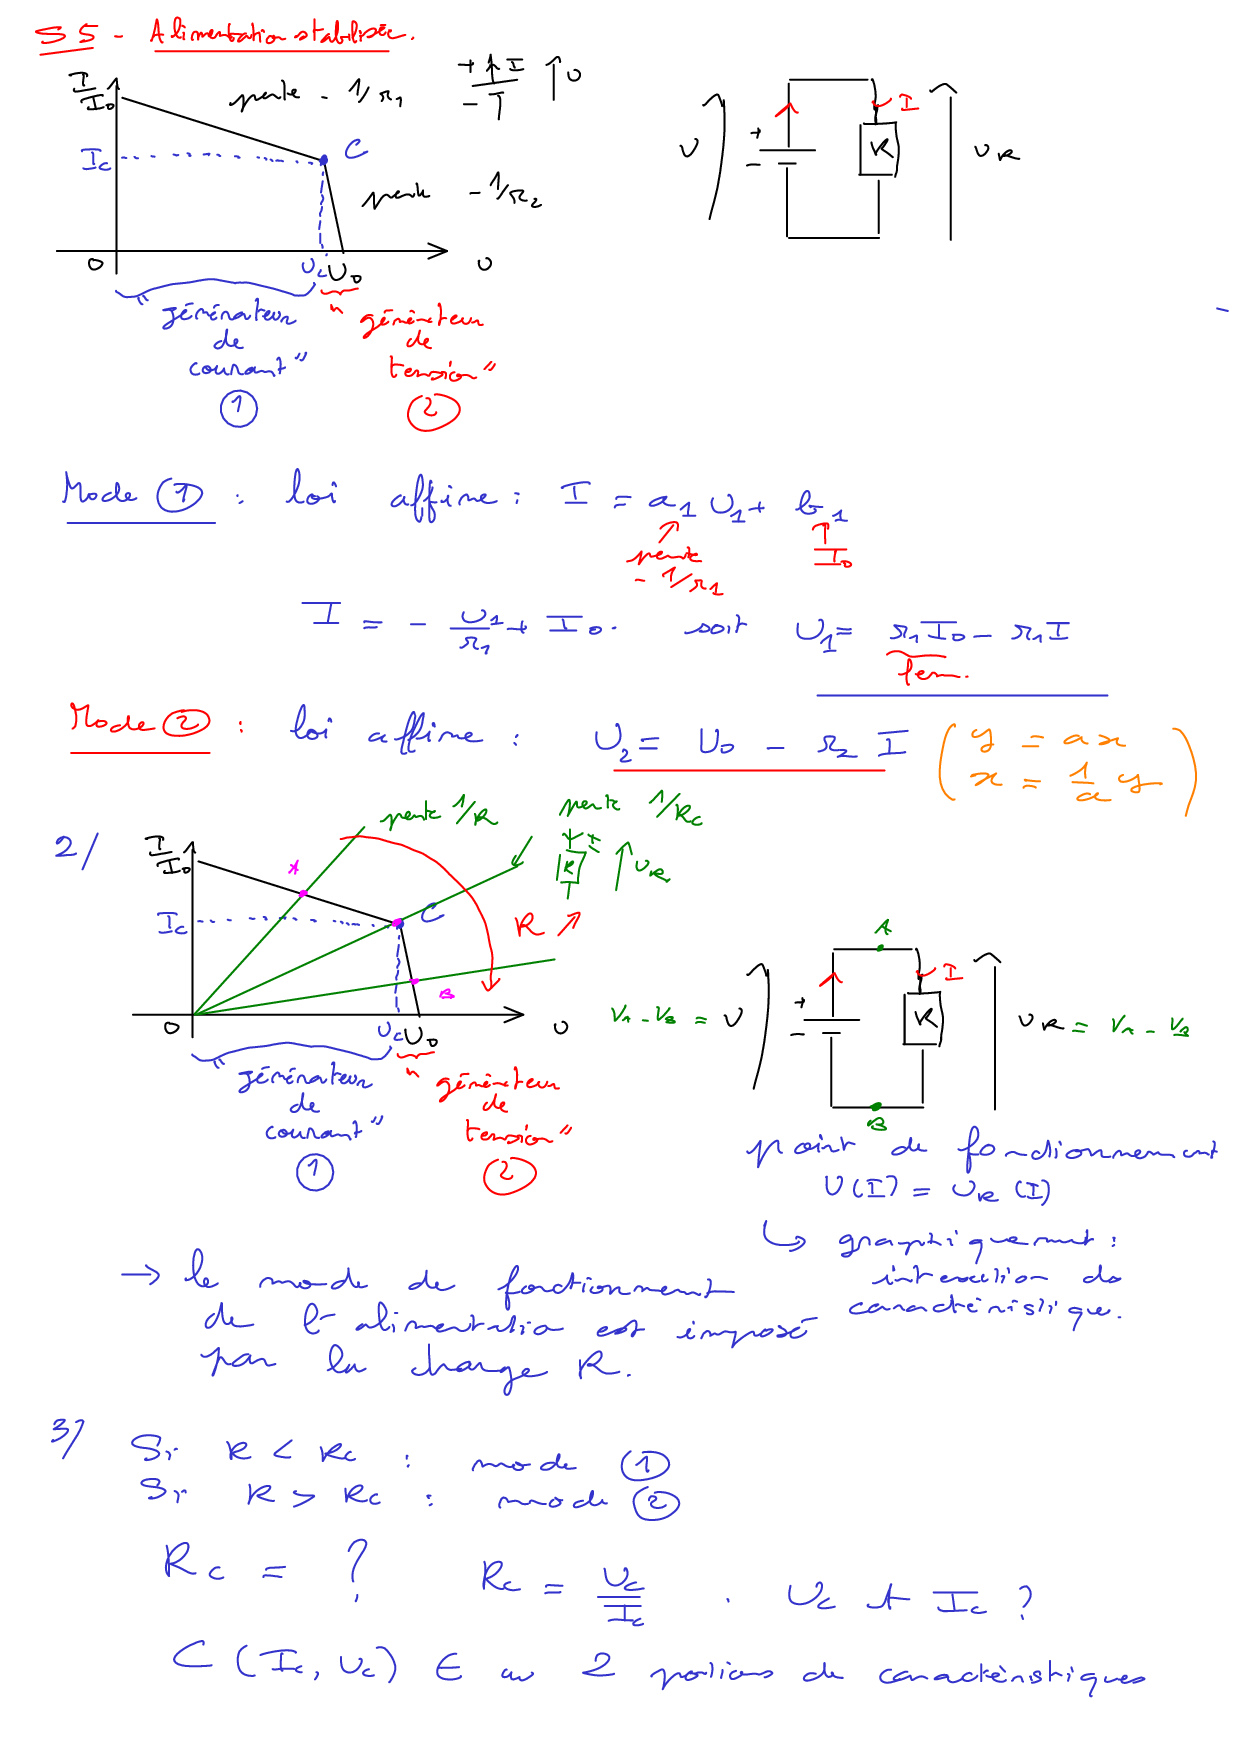 S5 - Alimentation stabilisée.
I
I0
pente - 1/r1
+ I
- U
Ic
C
pente -1/r2
0
Uc U0
U
U
+
-
I
R
UR
"générateur
de
courant"
1
"générateur
de
tension"
2
Mode 1 : loi affine : I = a1 U1 + b1
pente
- 1/r1
I0
I = - U1/r1 + I0. soit U1 = r1 I0 - r1 I
fem.
Mode 2 : loi affine : U2 = U0 - r2 I
( y = ax
x = 1/a y )
2/
I
I0
pente 1/R
pente 1/Rc
I
R
UR
A
Ic
C
R ↗
B
0
Uc U0
U
"générateur
de
courant"
1
"générateur
de
tension"
2
A
VA - VB = U
+
-
I
R
UR = VA - VB
B
point de fonctionnement
U(I) = UR (I)
↳ graphiquement :
intersection de
caractéristique.
→ le mode de fonctionnement
de l'alimentation est imposé
par la charge R.
3/
Si R < Rc : mode 1
Si R > Rc : mode 2
Rc = ? Rc = Uc/Ic . Uc et Ic ?
C (Ic, Uc) ∈ au 2 portions de caractéristiques